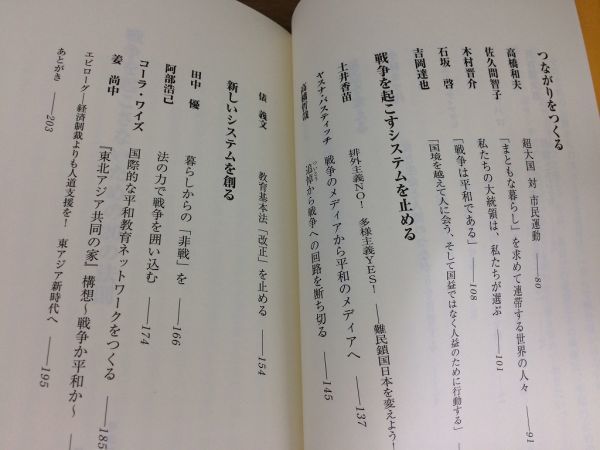 つながりをつくる
高橋和夫
超大国 対 市民運動 ——80
佐久間智子
「まともな暮らし」を求めて連帯する世界の人々 ——91
木村晋介
私たちの大統領は、私たちが選ぶ ——101
石坂 啓
「戦争は平和である」 ——108
吉岡達也
「国境を越えて人に会う、そして国益ではなく人益のために行動する」
戦争を起こすシステムを止める
土井香苗
排外主義NO! 多様主義YES! ——難民鎖国日本を変えよう!
ヤスナ・バスティッチ
戦争のメディアから平和のメディアへ ——137
高橋哲哉
追悼から戦争への回路を断ち切る ——145
俵 義文
教育基本法「改正」を止める ——154
新しいシステムを創る
田中 優
暮らしからの「非戦」を ——166
阿部浩己
法の力で戦争を囲い込む ——174
コーラ・ワイズ
国際的な平和教育ネットワークをつくる ——185
姜 尚中
『東北アジア共同の家』構想〜戦争か平和か〜 ——195
エピローグ——経済制裁よりも人道支援を! 東アジア新時代へ
あとがき ——203